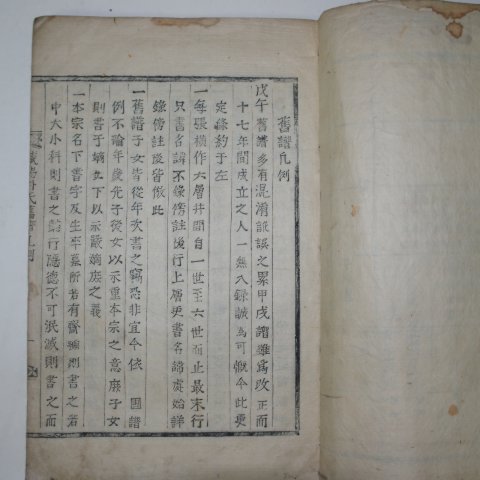 舊譜凡例
戊午舊譜多有混淆訛誤之累甲戌譜雖爲改正而
十七年間成立之人一無入錄誠爲可慨今此更
定條約于左
一每張横作六層井間自一世至六世而止最末行
只書名諱不錄傍註後行上層更書名諱處始詳
錄傍註後皆倣此
一舊譜子女皆從年次書之竊恐非宜今依 國譜
例不論年歲先子後女以示重本宗之意庶子女
則書于嫡女下以示嚴嫡庶之義
一本宗名下書字及生卒墓所若有齋號則書之若
中大小科則書之諸行隱德不可泯滅則書之而
氏舊譜凡例
一